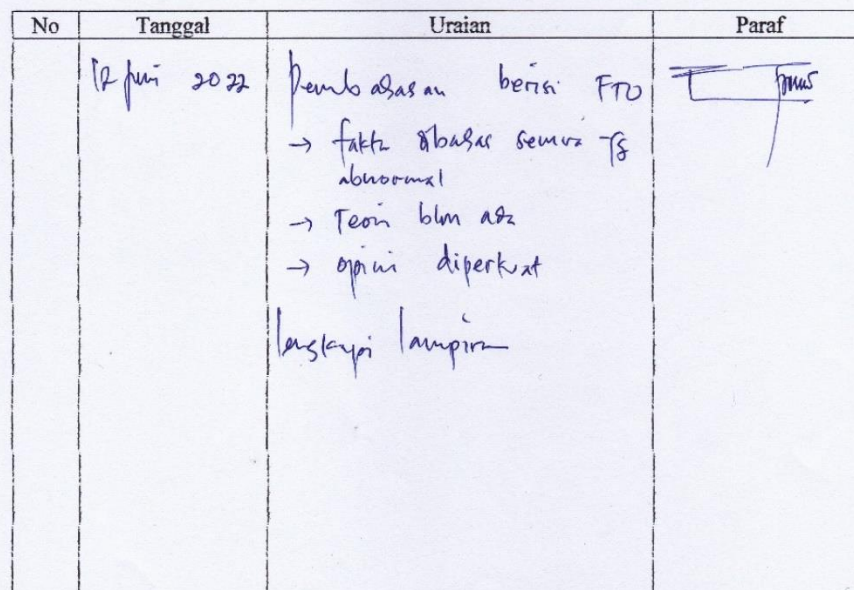 No Tanggal Uraian Paraf
12 Juni 2022 Pembahasan berisi FTO
→ fakta dibahas semua yg
abnormal
→ Teori blm ada
→ opini diperkuat
lengkapi lampiran